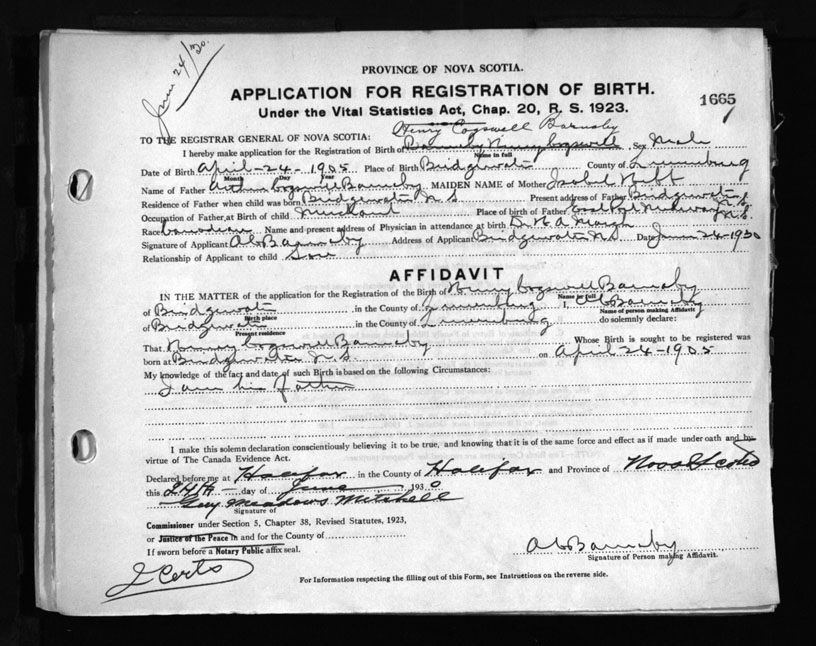 June 24/30.
PROVINCE OF NOVA SCOTIA.
APPLICATION FOR REGISTRATION OF BIRTH.
Under the Vital Statistics Act, Chap. 20, R. S. 1923.
1665
Henry Cogswell Barnaby
TO THE REGISTRAR GENERAL OF NOVA SCOTIA:
I hereby make application for the Registration of Birth of Barnaby Henry Cogswell Sex Male
Name in full
Date of Birth April-24-1905 Place of Birth Bridgewater County of Lunenburg
Month Day Year
Name of Father Arthur Cogswell Barnaby MAIDEN NAME of Mother Isobel
Residence of Father when child was born Bridgewater N S Present address of Father Bridgewater
Occupation of Father, at Birth of child Merchant Place of birth of Father Medway N.S.
Race Canadian Name and present address of Physician in attendance at birth Dr H A March
Signature of Applicant A C Barnaby Address of Applicant Bridgewater N S Date June 24-1930
Relationship of Applicant to child Son
AFFIDAVIT
IN THE MATTER of the application for the Registration of the Birth of Henry Cogswell Barnaby
Name in full
of Bridgewater in the County of Lunenburg I, A C Barnaby
Birth place Name of person making Affidavit
of Bridgewater in the County of Lunenburg do solemnly declare:
Present residence
That Henry Cogswell Barnaby Whose Birth is sought to be registered was
born at Bridgewater N.S. on April 24-1905
My knowledge of the fact and date of such Birth is based on the following Circumstances:
I am his father
I make this solemn declaration conscientiously believing it to be true, and knowing that it is of the same force and effect as if made under oath and by
virtue of The Canada Evidence Act.
Declared before me at Halifax in the County of Halifax and Province of Nova Scotia
this 24th day of June 1930
Guy Meadows Mitchell
Signature of
Commissioner under Section 5, Chapter 38, Revised Statutes, 1923,
or Justice of the Peace in and for the County of
If sworn before a Notary Public affix seal.
A C Barnaby
Signature of Person making Affidavit.
2 Certs
For Information respecting the filling out of this Form, see Instructions on the reverse side.